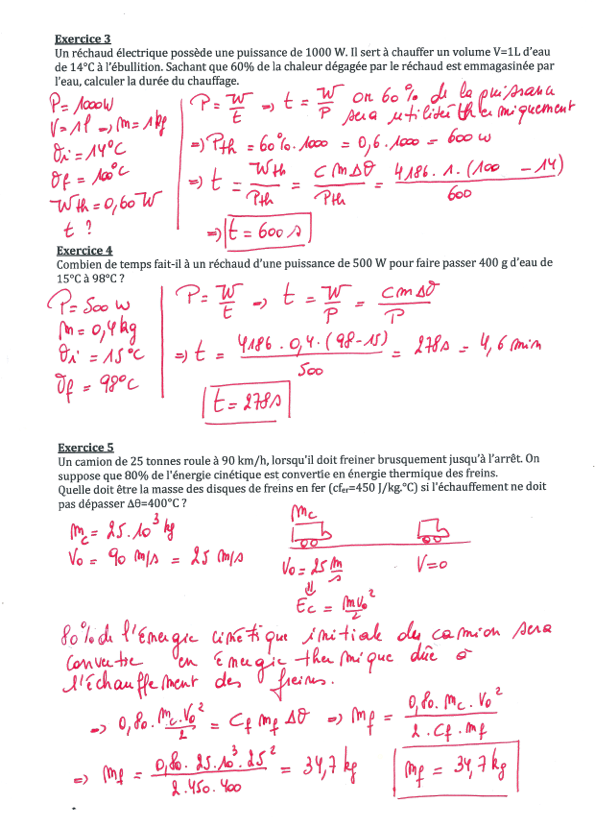 Exercice 3
Un réchaud électrique possède une puissance de 1000 W. Il sert à chauffer un volume V=1L d'eau
de 14°C à l'ébullition. Sachant que 60% de la chaleur dégagée par le réchaud est emmagasinée par
l'eau, calculer la durée du chauffage.
P = 1000W
V = 1l => m = 1kg
θi = 14°C
θf = 100°C
Wth = 0,60 W
t ?
P = W/t => t = W/P or 60% de la puissance
sera utilisée thermiquement
=> Pth = 60%. 1000 = 0,6 . 1000 = 600 W
=> t = Wth/Pth = C m Δθ/Pth = 4186 . 1 . (100 - 14)/600
=> t = 600 s
Exercice 4
Combien de temps fait-il à un réchaud d'une puissance de 500 W pour faire passer 400 g d'eau de
15°C à 98°C ?
P = 500 W
m = 0,4 kg
θi = 15°C
θf = 98°C
P = W/t => t = W/P = C m Δθ/P
=> t = 4186 . 0,4 . (98 - 15)/500 = 278s = 4,6 min
t = 278s
Exercice 5
Un camion de 25 tonnes roule à 90 km/h, lorsqu'il doit freiner brusquement jusqu'à l'arrêt. On
suppose que 80% de l'énergie cinétique est convertie en énergie thermique des freins.
Quelle doit être la masse des disques de freins en fer (cfer=450 J/kg.°C) si l'échauffement ne doit
pas dépasser Δθ=400°C ?
mc = 25.10³ kg
V0 = 90 m/s = 25 m/s
mc
V0 = 25 m/s
V=0
Ec = mV0²/2
80% de l'énergie cinétique initiale du camion sera
convertie en énergie thermique dûe à
l'échauffement des freins.
=> 0,80. mc.V0²/2 = Cf mf Δθ => mf = 0,80. mc . V0²/2 . Cf . mf
=> mf = 0,80. 25.10³.25²/2.450.400 = 34,7 kg
mf = 34,7 kg